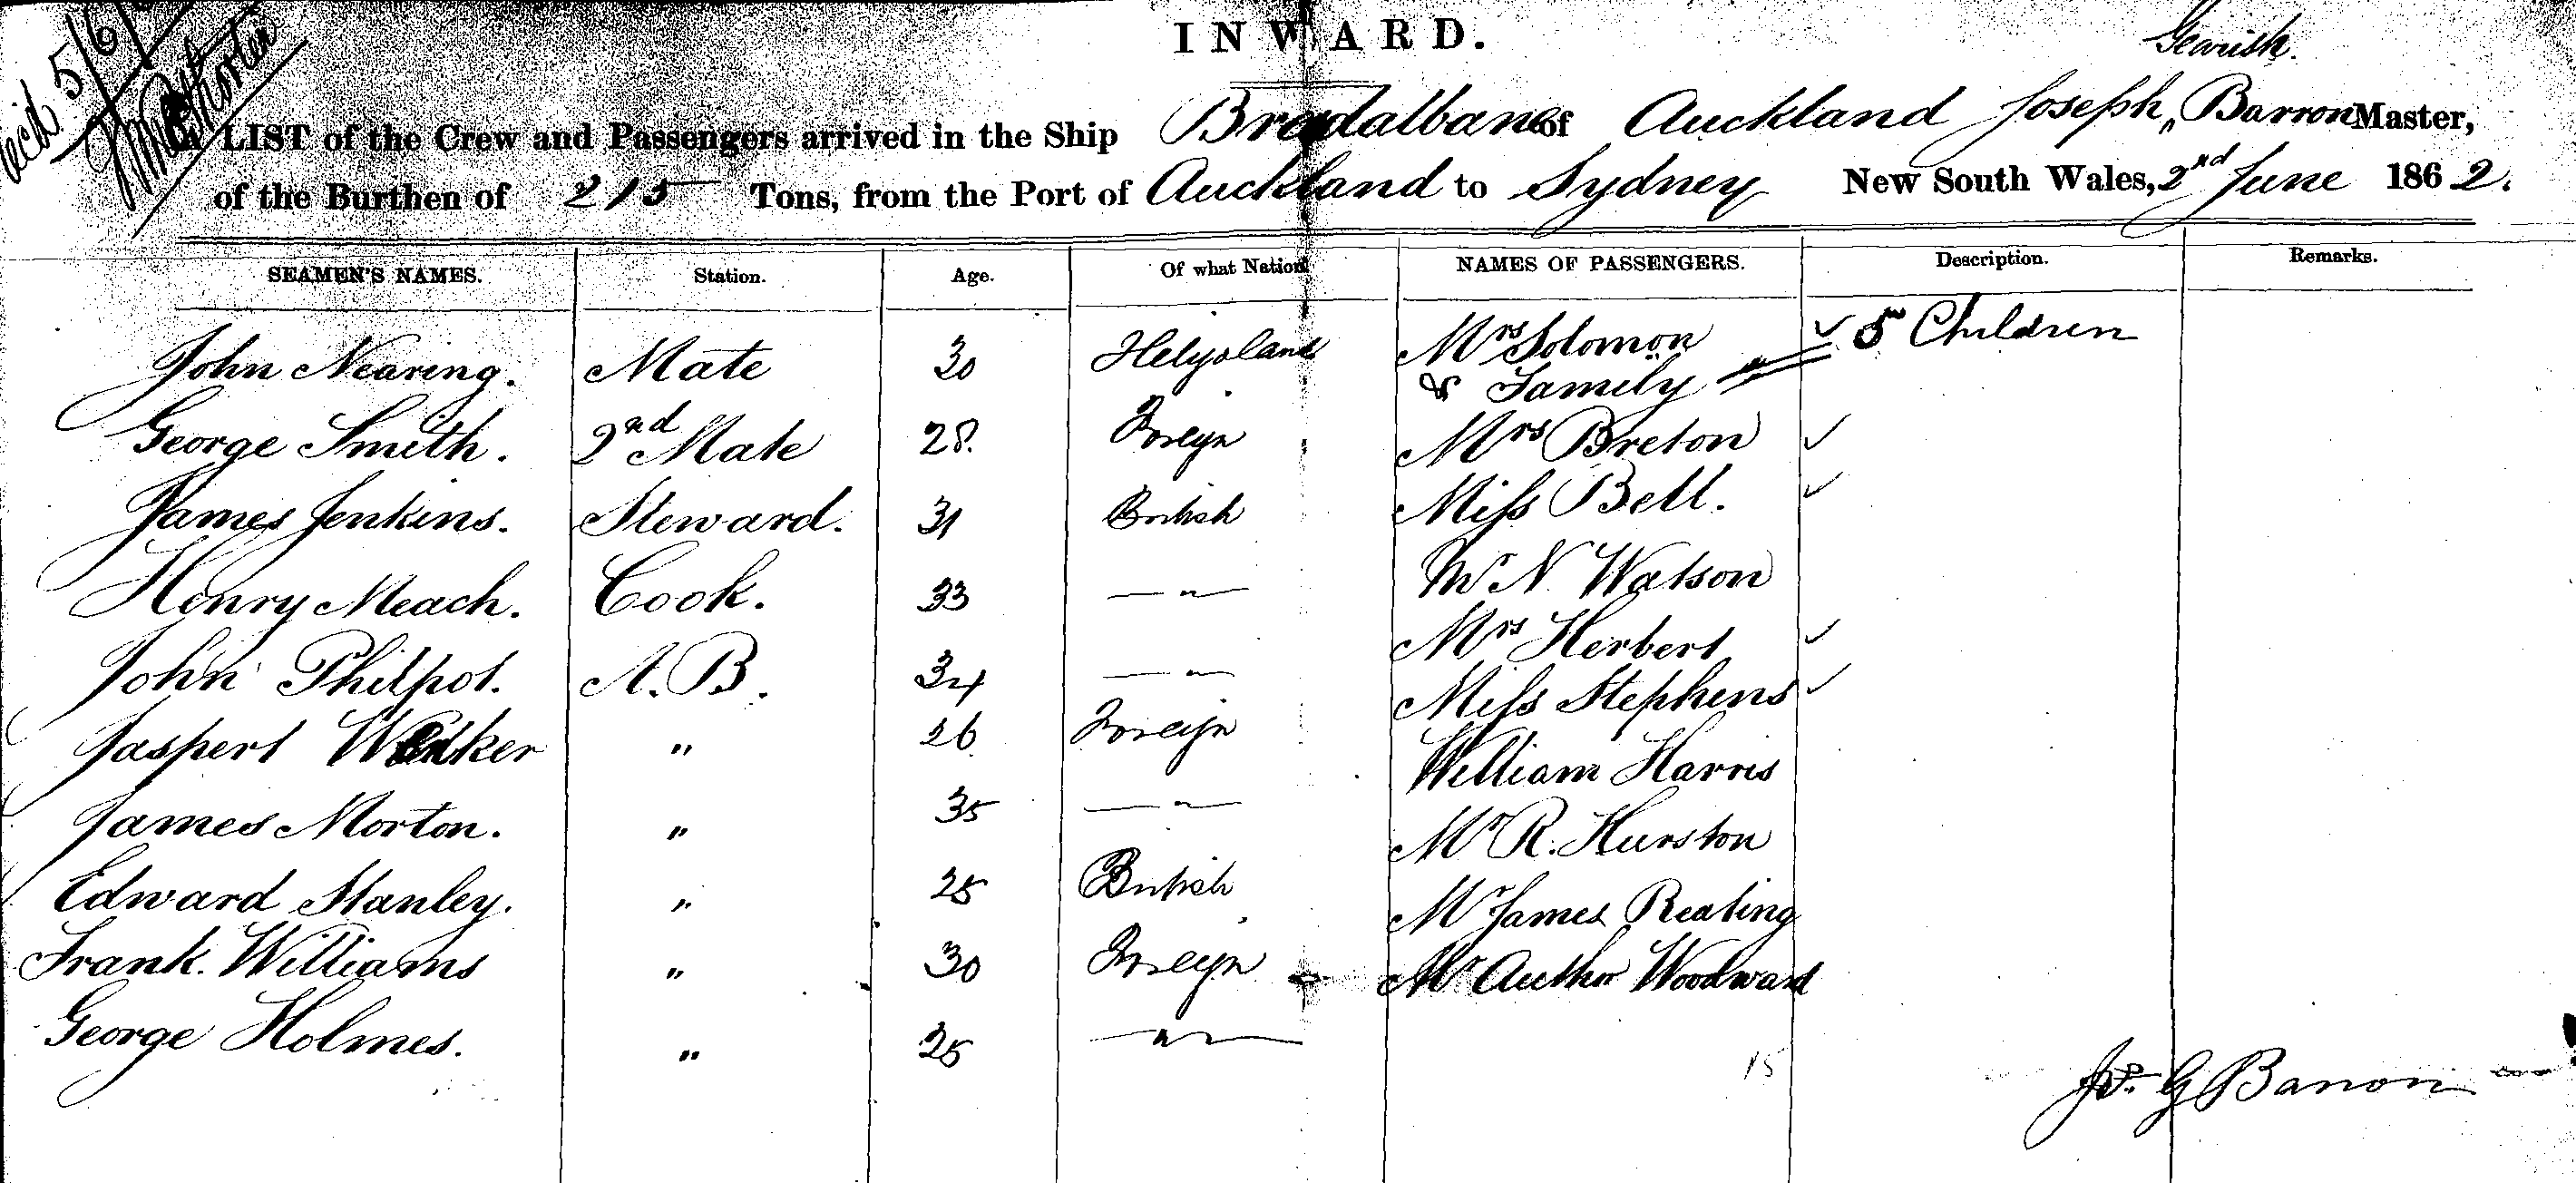 INWARD.
Gearish.
rec'd 5/6/
A LIST of the Crew and Passengers arrived in the Ship Bredalbane of Auckland Joseph " Barron Master,
of the Burthen of 215 Tons, from the Port of Auckland to Sydney New South Wales, 2nd June 1862.
SEAMEN'S NAMES. Station. Age. Of what Nation NAMES OF PASSENGERS. Description. Remarks.
John Nearing. Mate 30 Helgoland Mrs Solomon ✓ 5 Children
& Family
George Smith. 2nd Mate 28. Foreign Mrs Breton ✓
James Jenkins. Steward. 31 British Miss Bell. ✓
Henry Meach. Cook. 33 —"— Mr N. Watson
Mrs Herbert ✓
John Philpot. A.B. 34 —"— Miss Stephens ✓
Jaspert Walker " 26 Foreign William Harris
James Morton. " 35 —"— Mr R. Hurston
Edward Stanley. " 25 British Mr James Reating
Frank. Williams " 30 Foreign Mr Author Woodward
George Holmes. " 25 —"—
15
Jos. G Barron